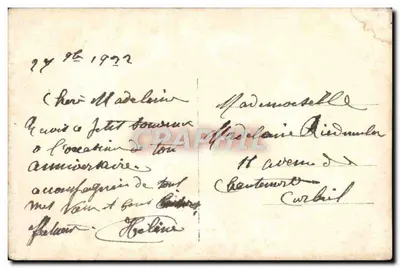 27 9bre 1922
Chère Madeleine
Reçois ce petit souvenir
a l'occasion de ton
anniversaire
accompagnés de tout
mes vœux et bons baisers
Hélène
Mademoiselle
Madeleine Riedmuller
11 avenue de
Chantemerle
Corbeil